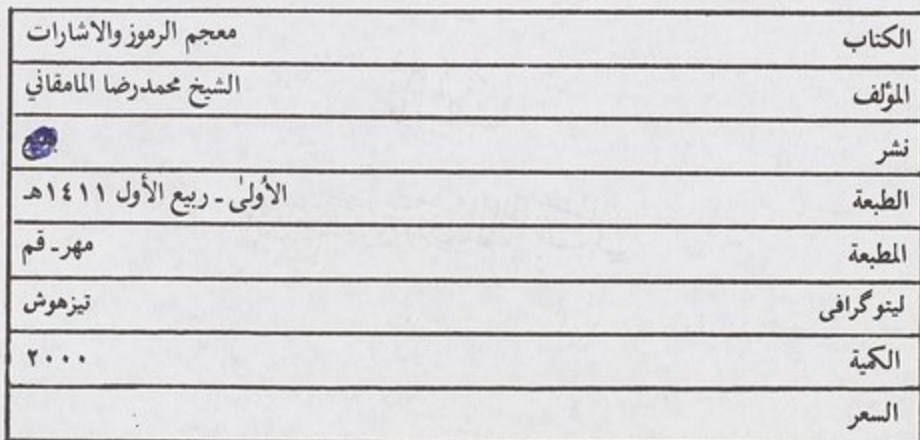 الكتاب معجم الرموز والاشارات
المؤلف الشيخ محمدرضا المامقاني
نشر
الطبعة الأُولىٰ ـ ربيع الأول ١٤١١هـ
المطبعة مهر ـ قم
ليتوگرافی تيزهوش
الكمية ٢٠٠٠
السعر